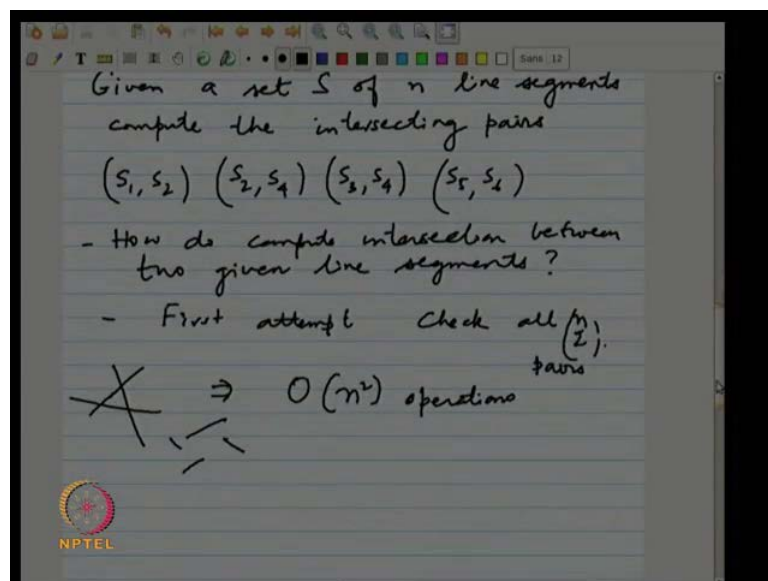 T
Sans 12
Given a set S of n line segments
compute the intersecting pairs
(S₁, S₂) (S₂, S₄) (S₃, S₄) (S₅, S₆)
- How do compute intersection between
two given line segments?
- First attempt Check all (n 2).
pairs
⇒ O(n²) operations
NPTEL